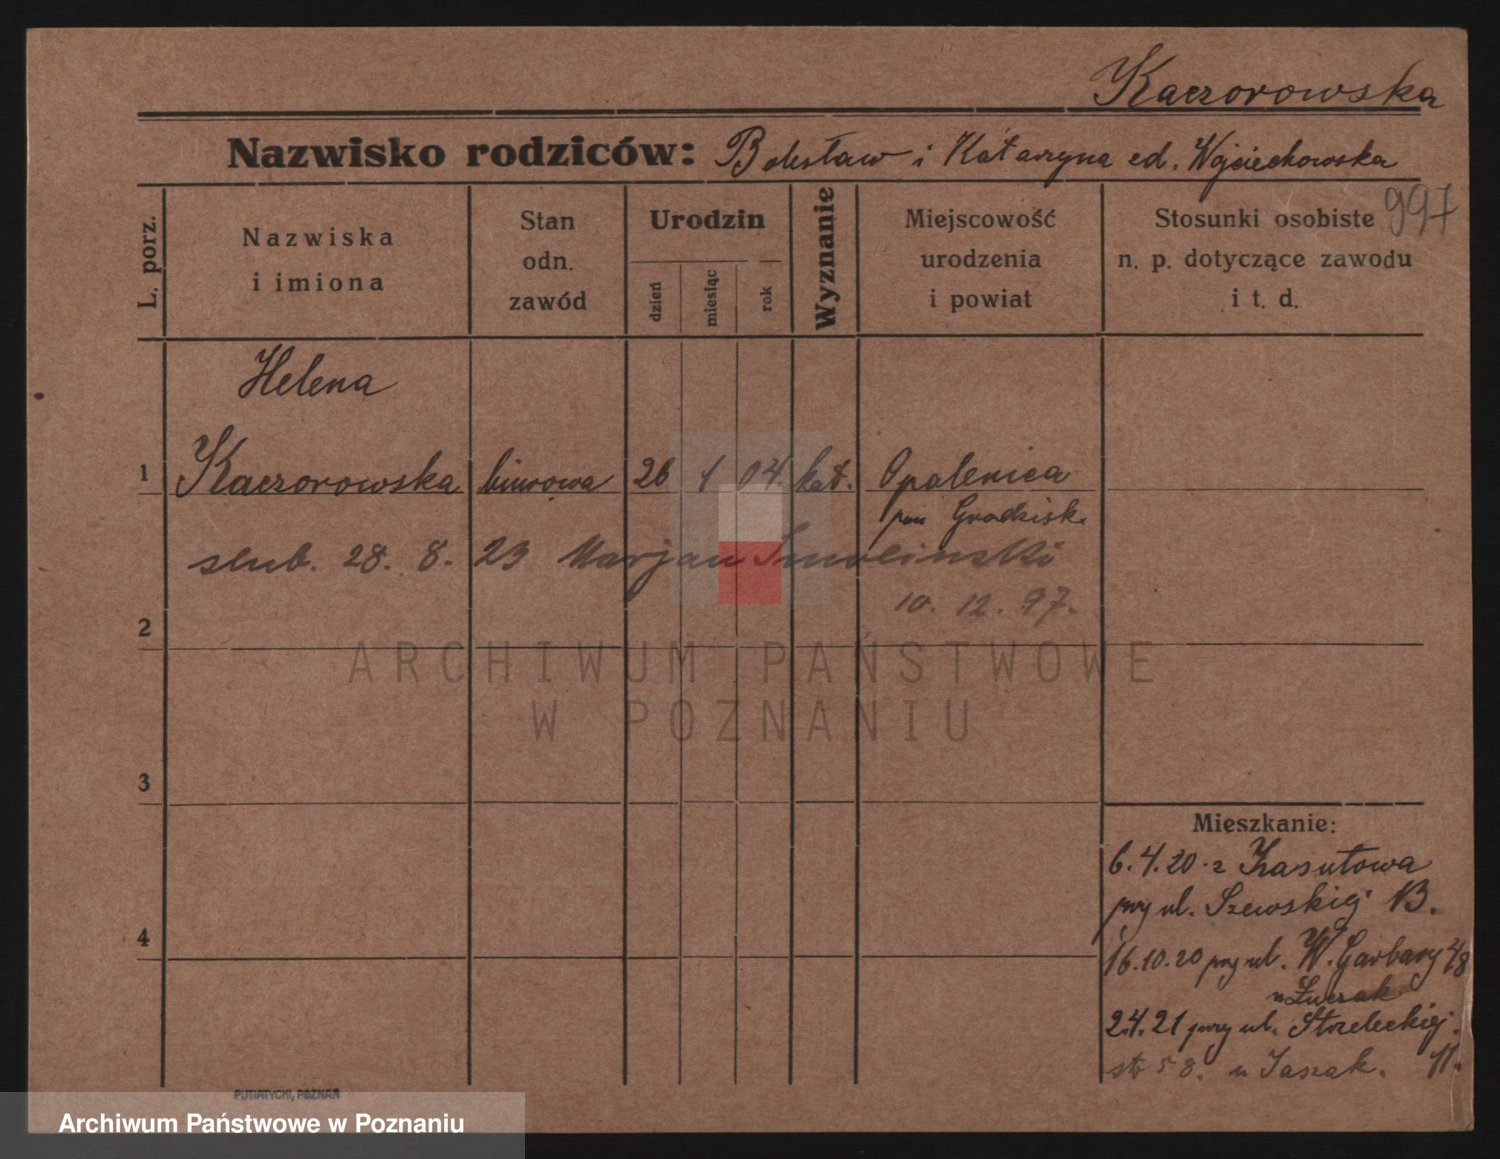 Kaczorowska
Nazwisko rodziców: Bolesław i Katarzyna ed. Wojciechowska
997
L. porz.
Nazwiska
i imiona
Stan
odn.
zawód
Urodzin
dzień
miesiąc
rok
Wyznanie
Miejscowość
urodzenia
i powiat
Stosunki osobiste
n. p. dotyczące zawodu
i t. d.
Helena
1 Kaczorowska biurowa 26 1 04. kat. Opalenica
pow Grodzisk.
slub. 28. 8. 23 Marjan Smolinski
10. 12. 97.
2
ARCHIWUM PAŃSTWOWE
W POZNANIU
3
Mieszkanie:
6.4.20 z Krasutowa
przy ul. Szewskiej 13.
4
16.10.20 przy ul. W. Garbary 48
u Łuczak
2.4.21 przy ul. Strzeleckiej
str 58. u Jaszak. 11.
PUTIATYCKI, POZNAŃ
Archiwum Państwowe w Poznaniu